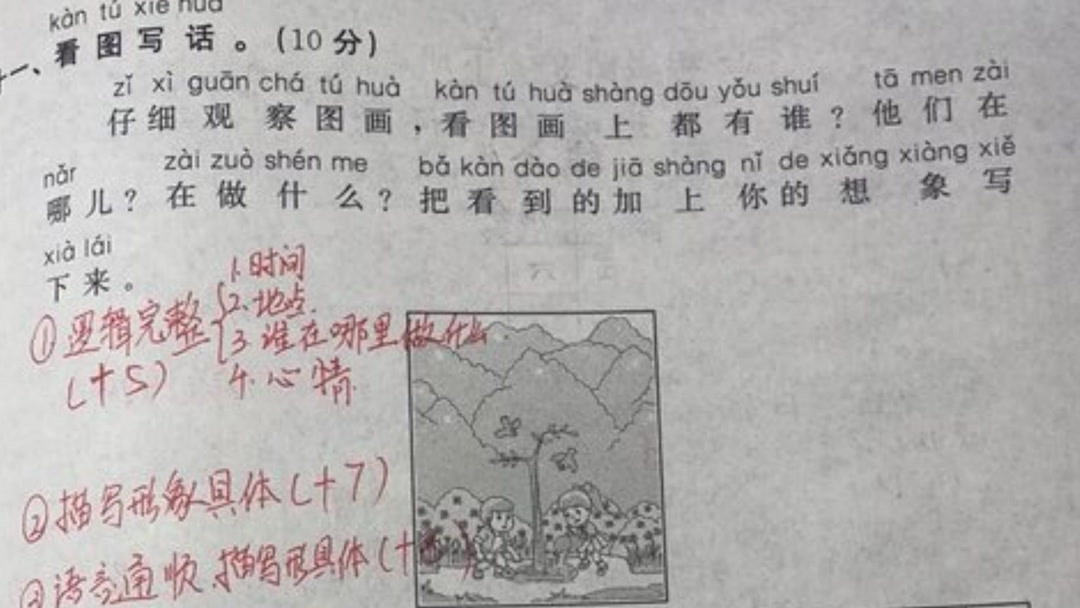 kàn tú xiě huà
十一、看图写话。(10分)
zǐ xì guān chá tú huà kàn tú huà shàng dōu yǒu shuí tā men zài
仔细观察图画,看图画上都有谁?他们在
nǎr zài zuò shén me bǎ kàn dào de jiā shàng nǐ de xiǎng xiàng xiě
哪儿?在做什么?把看到的加上你的想象写
xià lái
下来。
1.时间
①逻辑完整 2.地点.
3.谁在哪里做什么.
(+5) 4.心情.
②描写形象具体(+7)
③语言通顺、描写形具体(+